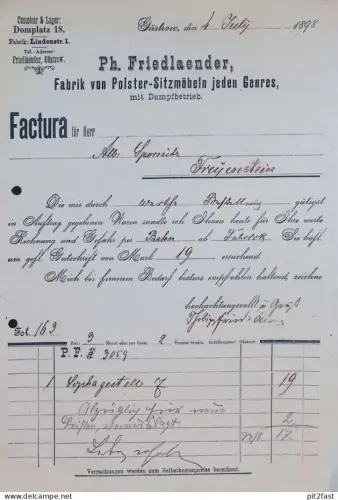 Comptoir & Lager:
Domplatz 18.
Fabrik: Lindenstr. I.
Tel.-Adresse:
Friedlaender, Güstrow.
Güstrow, den 4 July 1898
Ph. Friedlaender,
Fabrik von Polster-Sitzmöbeln jeden Genres,
mit Dampfbetrieb.
Factura für Herr
Alb.
Freyenstein
Die mir durch werthe Bestellung gütigst
in Auftrag gegebenen Waren sandte ich Ihnen heute für Ihre werte
Rechnung und Gefahr per Bahn ab Fabrik Sie höfl.
um gefl. Gutschrift von Mark 19 ersuchend.
Mich bei fernerem Bedarf bestens empfohlen haltend, zeichne
hochachtungsvoll u. ergbst
Fol. 163
Ziel: 3 Monat oder per Casse 2 Procent Sconto. Erfüllungsort: Güstrow.
P.F. # 3059
1 Sophagestell 7 19
2
17
Verpackungen werden zum Selbstkostenpreise berechnet.
www.pit2fast.com
pit2fast